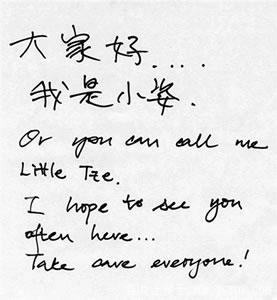 大家好....
我是小姿.
Or you can call me
Little Tze.
I hope to see you
often here...
Take care everyone!